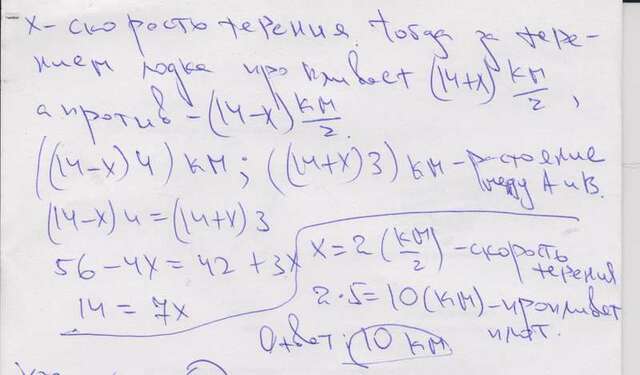 x – скорость течения. Тогда за тече-
нием лодка проплывает (14+x) км/г,
а против – (14–x) км/г.
((14–x)4) км; ((14+x)3) км – растояние
между А и В.
(14–x)4 = (14+x)3
56 – 4x = 42 + 3x
14 = 7x
x = 2 (км/г) – скорость
течения
2·5 = 10 (км) – проплывет
плот.
Ответ: 10 км